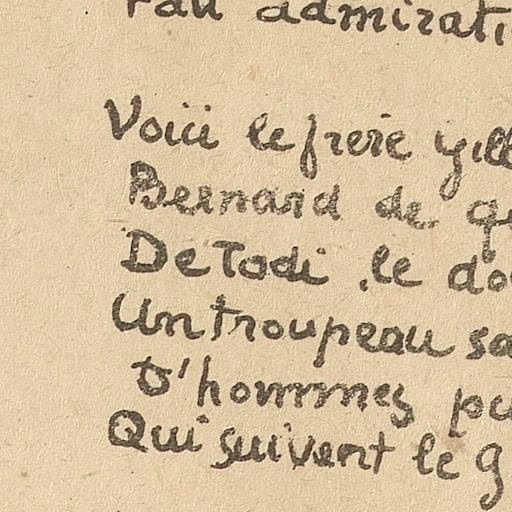 admirati
Voici le frere gill
Bernard de q
De Todi, le do
Un troupeau sa
D'hommes pu
Qui suivent le g